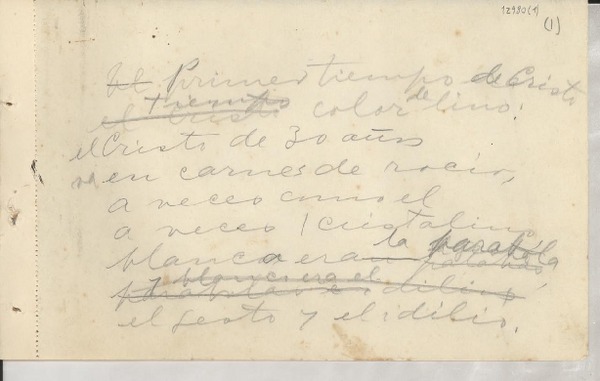 12980(1)
(1)
El Primer tiempo de Cristo
tiempo
el Cristo color de lino:
el Cristo de 30 años
en carnes de rocío,
a veces como el
a veces cristalino
blanca era la parábola
y blanco era el
el gesto y el idilio.